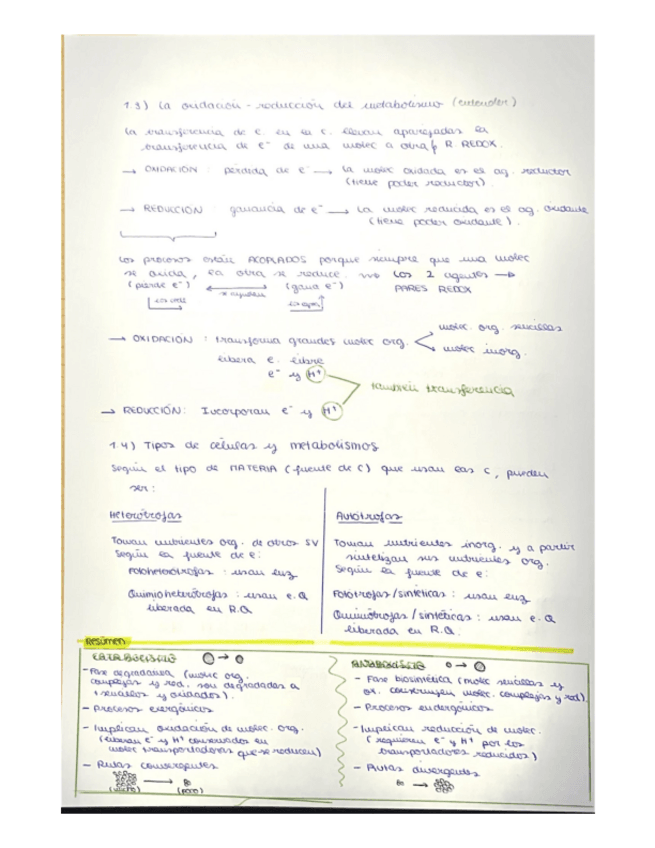 1.3) La oxidación-reducción del metabolismo (entender)
La transferencia de e. en la c. llevan aparejadas la
transferencia de e⁻ de una molec a otra R. REDOX.
→ OXIDACIÓN : pérdida de e⁻ → La molec oxidada es el ag. reductor
(tiene poder reductor).
→ REDUCCIÓN : ganancia de e⁻ → La molec reducida es el ag. oxidante
(tiene poder oxidante).
Los procesos están ACOPLADOS porque siempre que una molec
se oxida, la otra se reduce. Los 2 agentes →
(pierde e⁻) (gana e⁻) PARES REDOX
→ OXIDACIÓN : transforma grandes molec org. molec. org. sencillas
molec inorg.
libera e. libre
e⁻ y H⁺
también transferencia
→ REDUCCIÓN: Incorporan e⁻ y H⁺
1.4) Tipos de células y metabolismos
Según el tipo de MATERIA (fuente de C) que usan las c, pueden
ser:
Heterótrofas
Toman nutrientes org. de otros SV
Según la fuente de e:
Fotoheterótrofas : usan luz
Quimioheterótrofas : usan e.Q
liberada en R.Q
Autótrofas
Toman nutrientes inorg. y a partir
sintetizan sus nutrientes org.
Según la fuente de e:
Fotótrofas/sintéticas : usan luz
Quimiótrofas/sintéticas : usan e.Q
liberada en R.Q.
Resumen
CATABOLISMO
- Fase degradativa (molec org.
complejas y red. son degradadas a
+ sencillas y oxidadas).
- Procesos exergónicos
- Implican oxidación de molec. org.
(liberan e⁻ y H⁺ conservados en
molec transportadoras que se reducen)
- Rutas convergentes
(mucho) → (poco)
ANABOLISMO
- Fase biosintética (molec sencillas y
ox. construyen molec. complejas y red).
- Procesos endergónicos
- Implican reducción de molec.
(requieren e⁻ y H⁺ por los
transportadores reducidos)
- Rutas divergentes